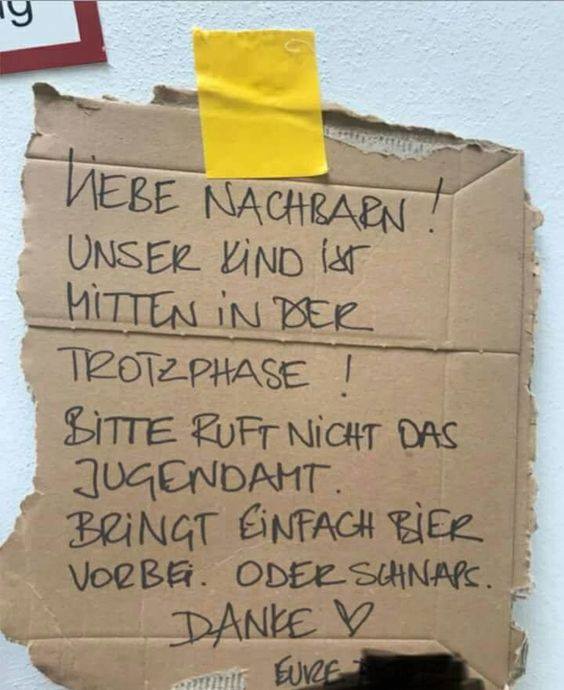 LIEBE NACHBARN!
UNSER KIND IST
MITTEN IN DER
TROTZPHASE!
BITTE RUFT NICHT DAS
JUGENDAMT.
BRINGT EINFACH BIER
VORBEI. ODER SCHNAPS.
DANKE ♡
EURE